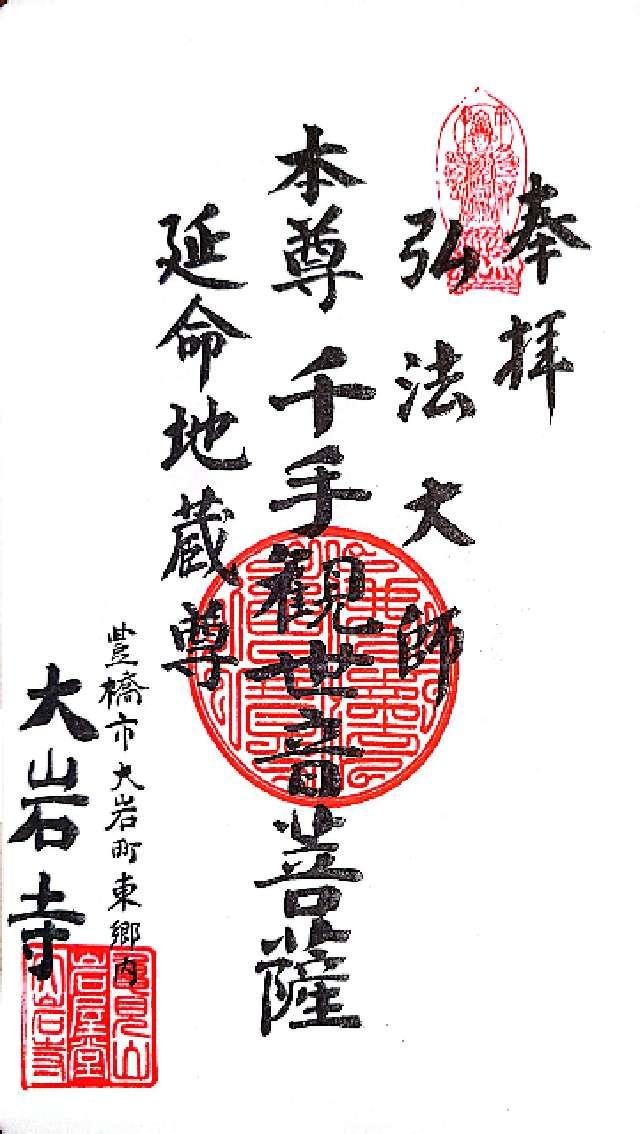 奉拝
弘法大師
本尊 千手観世音菩薩
延命地蔵尊
豊橋市大岩町東郷内
大岩寺
亀見山
岩屋堂
大岩寺